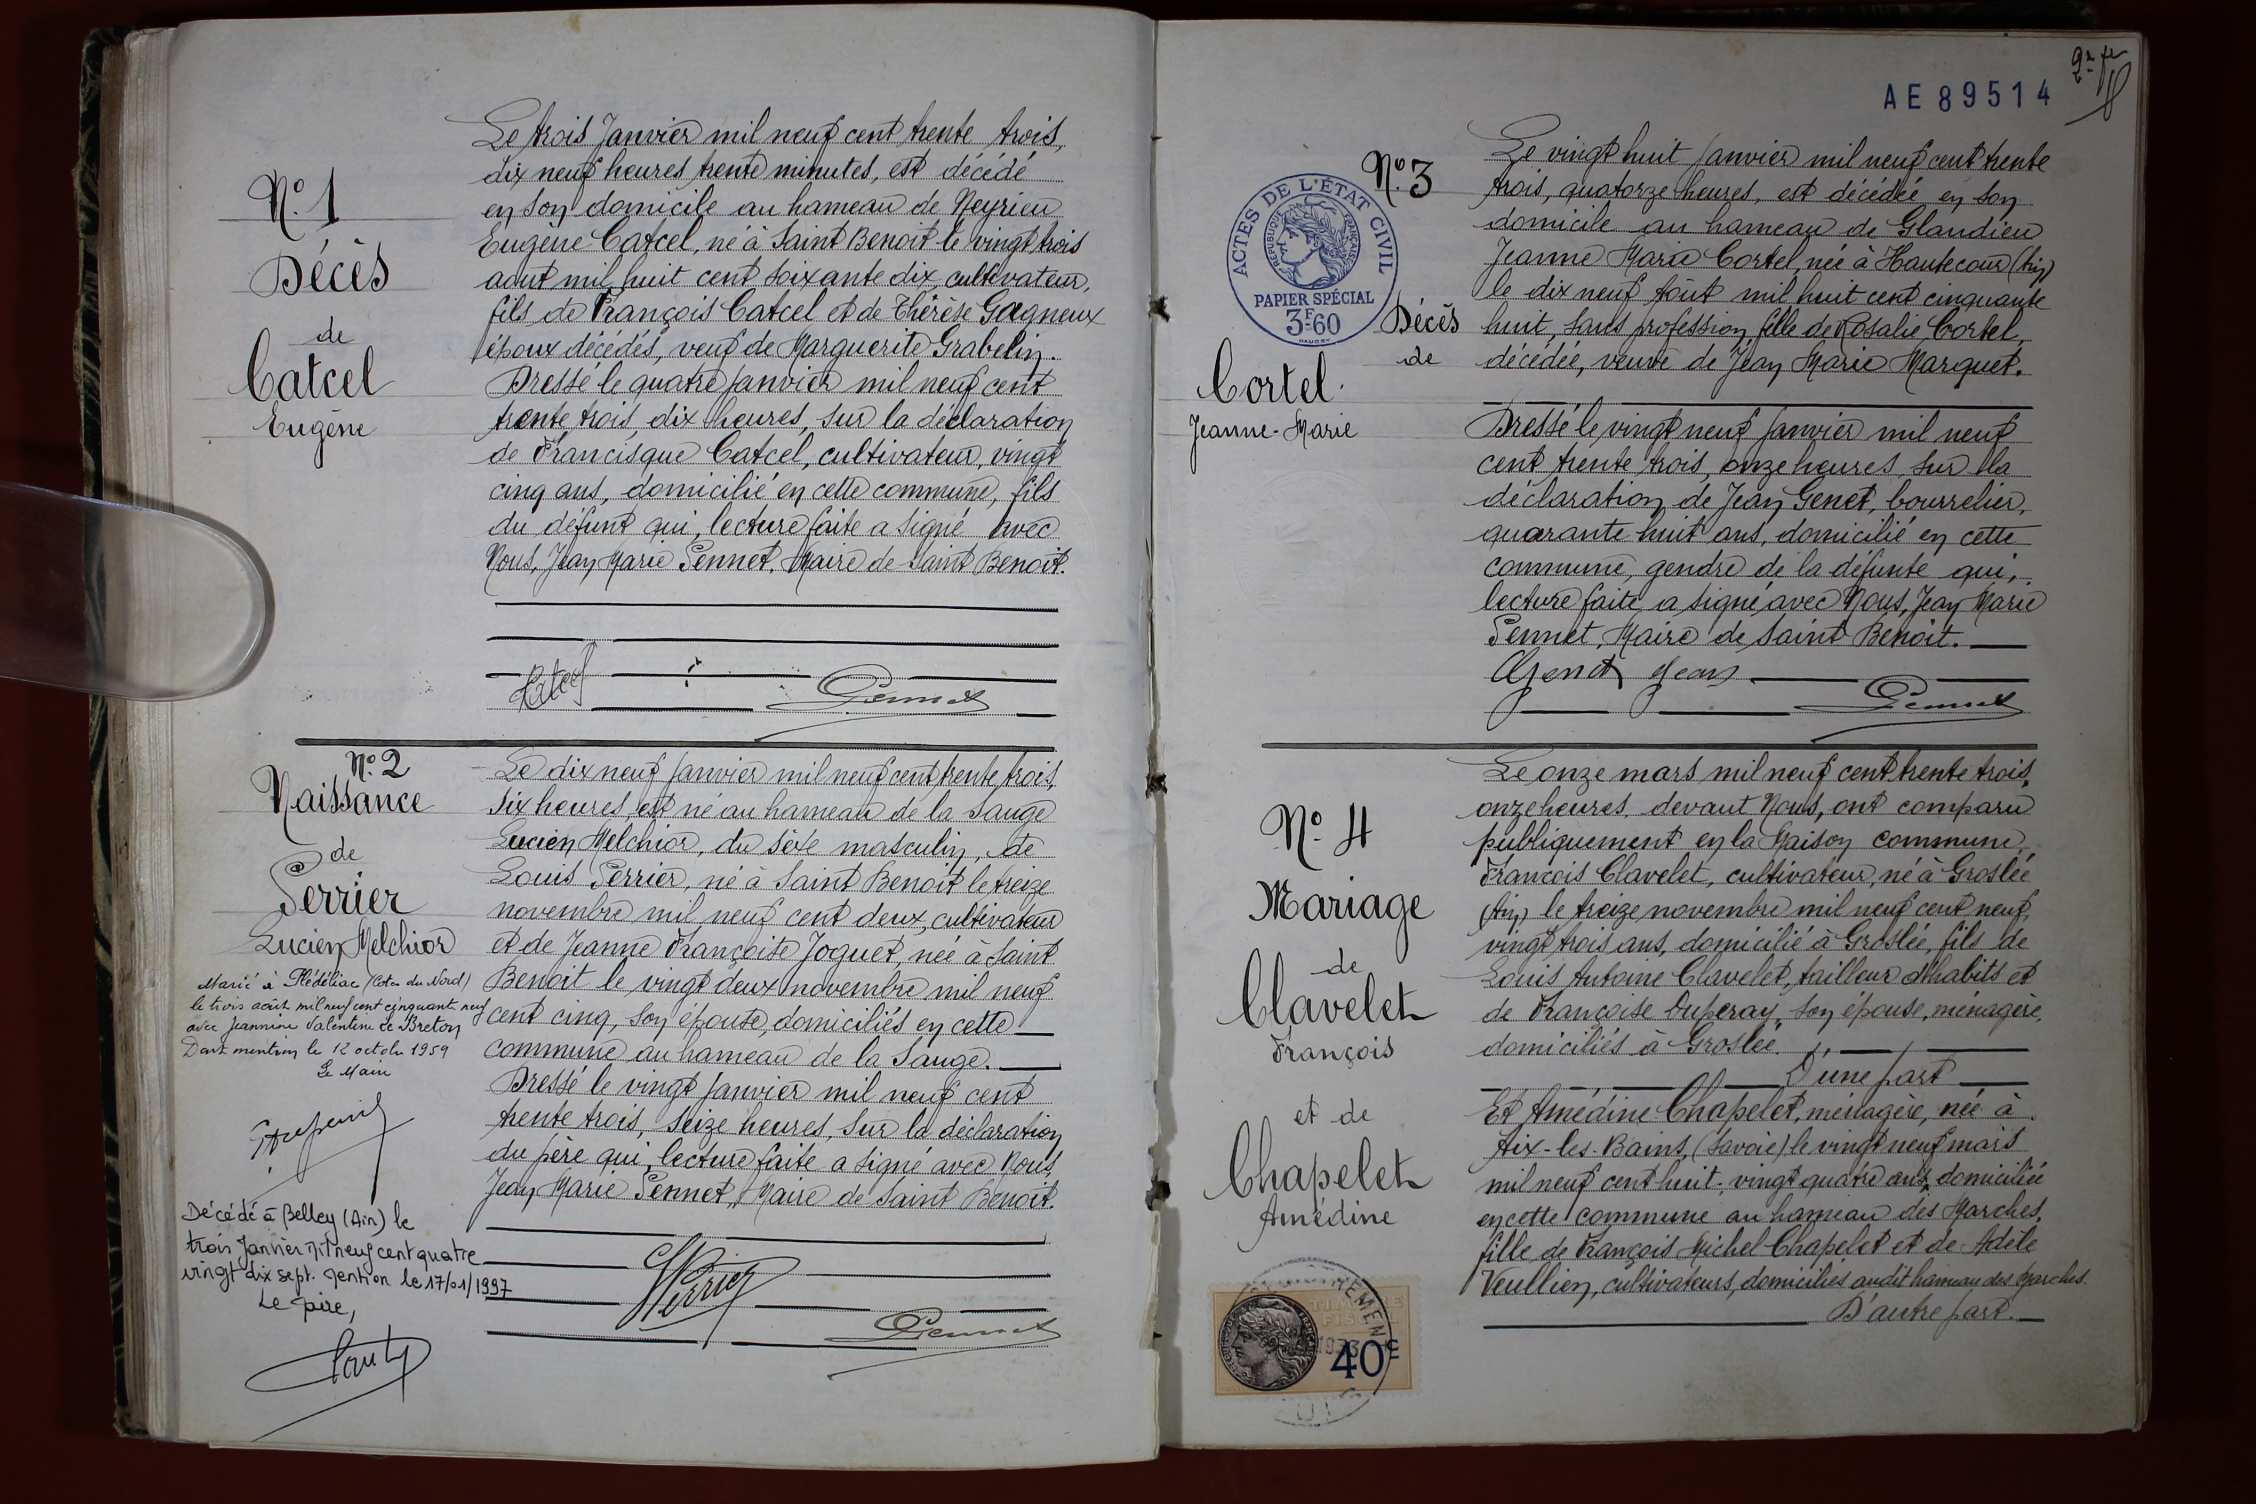 Le trois Janvier mil neuf cent trente trois,
dix neuf heures trente minutes, est décédé
en son domicile au hameau de Neyrieu
Eugène Catcel, né à Saint Benoit le vingt trois
aout mil huit cent soixante dix, cultivateur,
fils de François Catcel et de Thérèse Gagneux
époux décédés, veuf de Marguerite Grabelin.
Dressé le quatre Janvier mil neuf cent
trente trois, dix heures, sur la déclaration
de Francisque Catcel, cultivateur, vingt
cinq ans, domicilié en cette commune, fils
du défunt qui, lecture faite a signé avec
Nous, Jean Marie Pennet, Maire de Saint Benoit.
N° 1
Décès
de
Catcel
Eugène
Catcel
Pennet
N° 2
Naissance
de
Perrier
Lucien Melchior
Marié à Plédéliac (Côtes du Nord)
le trois août mil neuf cent cinquante neuf
avec Jeannine Valentine Le Breton
Dont mention le 12 octobre 1959
Le Maire
Décédé à Belley (Ain) le
trois Janvier Mil neuf cent quatre
vingt dix sept. Mention le 17/01/1997
Le Maire,
Le dix neuf Janvier mil neuf cent trente trois,
six heures, est né au hameau de la Sauge
Lucien Melchior, du sexe masculin, de
Louis Perrier, né à Saint Benoit le treize
novembre mil neuf cent deux, cultivateur
et de Jeanne Françoise Joguet, née à Saint
Benoit le vingt deux novembre mil neuf
cent cinq, son épouse, domiciliés en cette
commune au hameau de la Sauge.
Dressé le vingt Janvier mil neuf cent
trente trois, seize heures, sur la déclaration
du père qui, lecture faite a signé avec Nous,
Jean Marie Pennet, Maire de Saint Benoit.
Perrier
Pennet
AE 89514
N° 3
ACTES DE L'ÉTAT CIVIL
RÉPUBLIQUE FRANÇAISE
PAPIER SPÉCIAL
3F60
Décès
de
Cortel
Jeanne-Marie
Le vingt huit Janvier mil neuf cent trente
trois, quatorze heures, est décédée en son
domicile au hameau de Glandieu
Jeanne Marie Cortel, née à Hautecour (Ain)
le dix neuf Août mil huit cent cinquante
huit, sans profession, fille de Rosalie Cortel,
décédée, veuve de Jean Marie Marquet.
Dressé le vingt neuf Janvier mil neuf
cent trente trois, onze heures, sur la
déclaration de Jean Genet, bourrelier,
quarante huit ans, domicilié en cette
commune, gendre de la défunte qui,
lecture faite a signé avec Nous, Jean Marie
Pennet, Maire de Saint Benoit.
Genet Jean
Pennet
N° 4
Mariage
de
Clavelet
François
et de
Chapelet
Amédine
1933
40c
Le onze mars mil neuf cent trente trois,
onze heures, devant Nous, ont comparu
publiquement en la Maison commune,
François Clavelet, cultivateur, né à Groslée
(Ain) le treize novembre mil neuf cent neuf,
vingt trois ans, domicilié à Groslée, fils de
Louis Antoine Clavelet, tailleur d'habits et
de Françoise Duperay, son épouse, ménagère,
domiciliés à Groslée.
D'une part
Et Amédine Chapelet, ménagère, née à
Aix-les-Bains, (Savoie) le vingt neuf mars
mil neuf cent huit, vingt quatre ans, domiciliée
en cette commune au hameau des Marches,
fille de François Michel Chapelet et de Adèle
Veullien, cultivateurs, domiciliés audit hameau des Marches.
D'autre part.